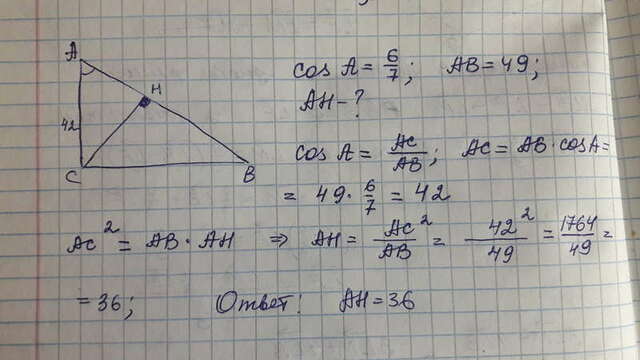 A
42
C
H
B
cos A = 6/7; AB = 49;
AH - ?
cos A = AC/AB; AC = AB · cos A =
= 49 · 6/7 = 42
AC² = AB · AH ⇒ AH = AC²/AB = 42²/49 = 1764/49 =
= 36; Ответ: AH = 36